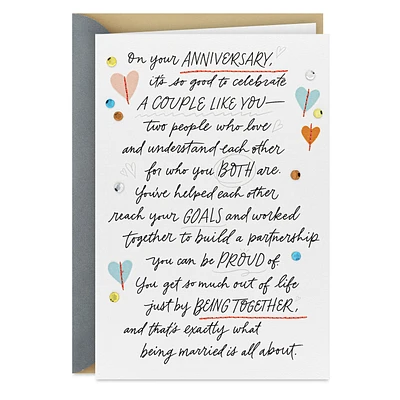 On your ANNIVERSARY,
it's so good to celebrate
A COUPLE LIKE YOU—
two people who love
and understand each other
for who you BOTH are.
You've helped each other
reach your GOALS and worked
together to build a partnership
you can be PROUD of.
You get so much out of life
just by BEING TOGETHER,
and that's exactly what
being married is all about.